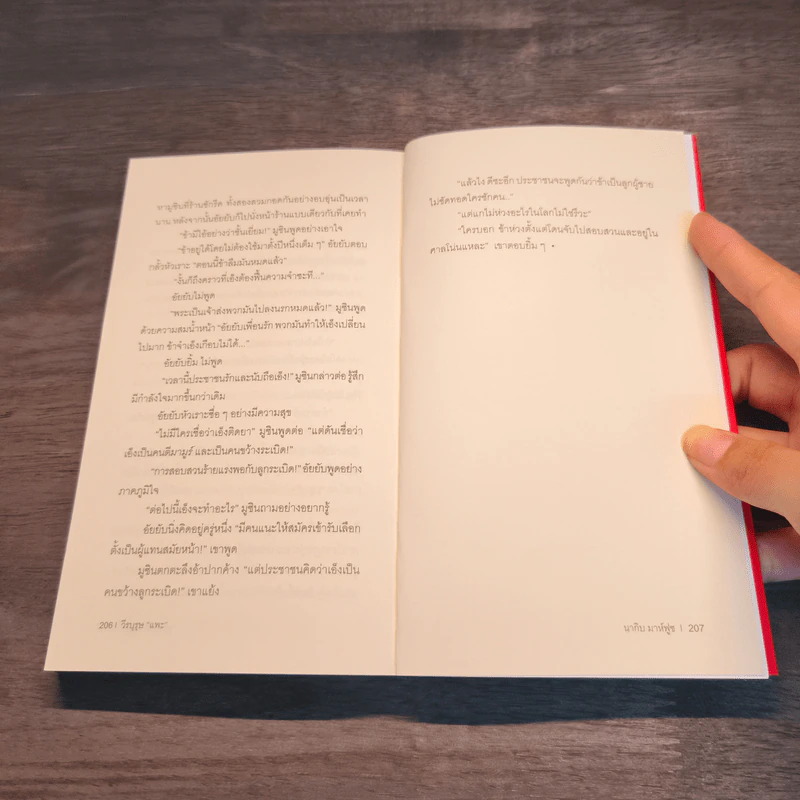 หามูซินที่ร้านซักรีด ทั้งสองสวมกอดกันอย่างอบอุ่นเป็นเวลา
นาน หลังจากนั้นอัยยับก็ไปนั่งหน้าร้านแบบเดียวกับที่เคยทำ
"ข้ามีไอ้อย่างว่าชั้นเยี่ยม!" มูซินพูดอย่างเอาใจ
"ข้าอยู่ได้โดยไม่ต้องใช้มาตั้งปีหนึ่งเต็ม ๆ" อัยยับตอบ
กลั้วหัวเราะ "ตอนนี้ข้าลืมมันหมดแล้ว"
"งั้นก็ถึงคราวที่เอ็งต้องฟื้นความจำซะที..."
อัยยับไม่พูด
"พระเป็นเจ้าส่งพวกมันไปลงนรกหมดแล้ว!" มูซินพูด
ด้วยความสมน้ำหน้า "อัยยับเพื่อนรัก พวกมันทำให้เอ็งเปลี่ยน
ไปมาก ข้าจำเอ็งเกือบไม่ได้..."
อัยยับยิ้ม ไม่พูด
"เวลานี้ประชาชนรักและนับถือเอ็ง!" มูซินกล่าวต่อ รู้สึก
มีกำลังใจมากขึ้นกว่าเดิม
อัยยับหัวเราะชื่อ ๆ อย่างมีความสุข
"ไม่มีใครเชื่อว่าเอ็งติดยา" มูซินพูดต่อ "แต่ดันเชื่อว่า
เอ็งเป็นคนตีมามูร์ และเป็นคนขว้างระเบิด!"
"การสอบสวนร้ายแรงพอกับลูกระเบิด!" อัยยับพูดอย่าง
ภาคภูมิใจ
"ต่อไปนี้เอ็งจะทำอะไร" มูซินถามอย่างอยากรู้
อัยยับนิ่งคิดอยู่ครู่หนึ่ง "มีคนแนะให้สมัครเข้ารับเลือก
ตั้งเป็นผู้แทนสมัยหน้า!" เขาพูด
มูซินตกตะลึงอ้าปากค้าง "แต่ประชาชนคิดว่าเอ็งเป็น
คนขว้างลูกระเบิด!" เขาแย้ง
206 | วีรบุรุษ "แพะ"
"แล้วไง ดีซะอีก ประชาชนจะพูดกันว่าข้าเป็นลูกผู้ชาย
ไม่ซัดทอดใครซักคน.."
"แต่แกไม่ห่วงอะไรในโลกไม่ใช่รึวะ"
"ใครบอก ข้าห่วงตั้งแต่โดนจับไปสอบสวนและอยู่ใน
ศาลโน่นแหละ" เขาตอบยิ้ม ๆ •
นากิบ มาห์ฟูซ | 207